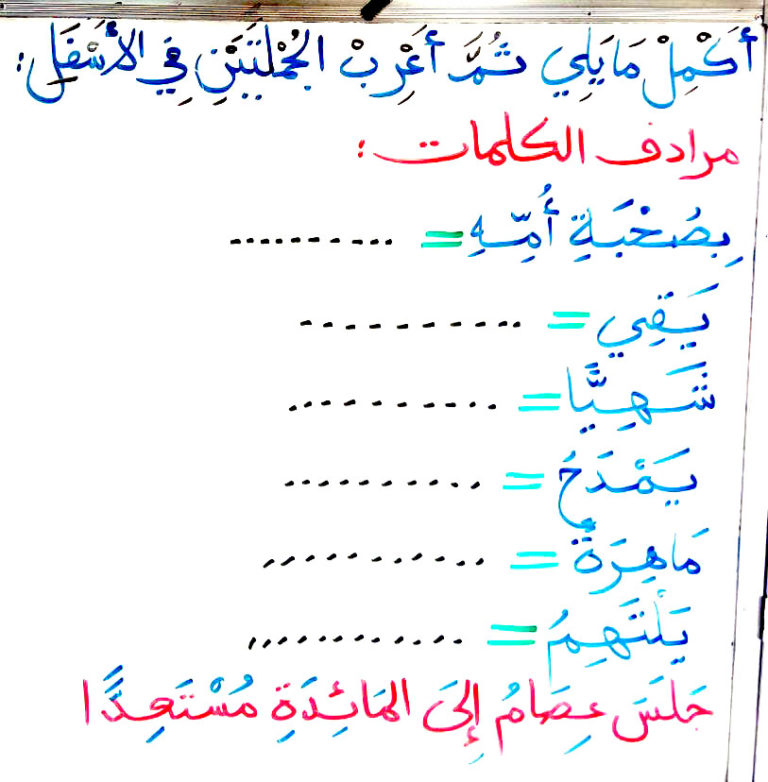 أَكْمِلْ مَا يَلِي ثُمَّ أَعْرِبْ الجُمْلَتَيْنِ فِي الأَسْفَلِ:
مرادف الكلمات :
بِصُحْبَةِ أُمِّهِ = ..........
يَقِي = ..........
شَهِيًّا = ..........
يَمْدَحُ = ..........
مَاهِرَةٌ = ...........
يَلْتَهِمُ = ............
جَلَسَ عِصَامُ إِلَى المَائِدَةِ مُسْتَعِدًّا